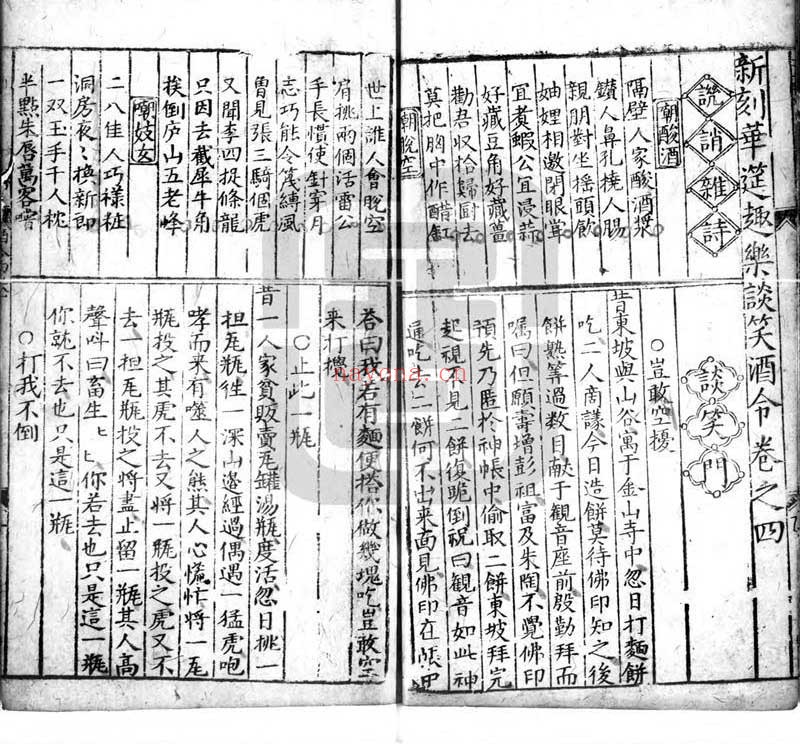 新刻華筵趣樂談笑酒令卷之四
詼誚雜詩
嘲酸酒
隔壁人家酸酒漿
鑽人鼻孔撓人腸
親朋對坐搖頭飲
妯娌相邀閉眼嘗
宜煮蝦公宜浸蒜
好藏豆角好藏薑
勸君收拾歸廚去
莫把胸中作醋缸
嘲脫空
談笑門
○豈敢空擾
昔東坡與山谷寓于金山寺中忽日打麵餅
吃二人商議今日造餅莫待佛印知之後
餅熟筭過數目献于覌音座前殷勤拜而
囑曰但願壽增彭祖富及朱陶不覺佛印
預先乃匿於神帳中偷取二餅東坡拜完
起視不見二餅復跪倒祝曰覌音如此神
通吃了二餅何不出来面見佛印在帳里
世上誰人會脫空
肩挑兩個活雷公
手長慣使針穿月
志巧能令篾縛風
曾見張三騎個虎
又聞李四捉條龍
只因去截犀牛角
挨倒庐山五老峰
嘲妓女
二八佳人巧樣粧
洞房夜〻換新郎
一双玉手千人枕
半點朱唇萬客嘗
荅曰我若有麵便搭你做幾塊吃豈敢空
来打攪
○止此一瓶
昔一人家貧販賣瓦罐湯瓶度活忽日挑一
担瓦瓶徃一深山邊經過偶遇一猛虎咆
哮而来有噬人之態其人心慌忙將一瓦
瓶投之其虎不去又將一瓶投之虎又不
去一担瓦瓶投之將盡止留一瓶其人高
聲呌曰畜生〻〻你若去也只是這一瓶
你就不去也只是這一瓶
○打我不倒
nayona.cn